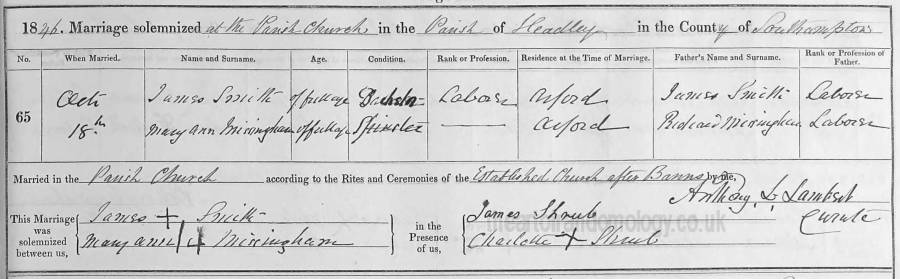 1846. Marriage solemnized at the Parish Church in the Parish of Headley in the County of Southampton
No. When Married. Name and Surname. Age. Condition. Rank or Profession. Residence at the Time of Marriage. Father's Name and Surname. Rank or Profession of Father.
65 Oct. 18th
James Smith of full age Bachelor Laborer Arford James Smith Laborer
Mary Ann Missingham of full age Spinster — Arford Richard Missingham Laborer
Married in the Parish Church according to the Rites and Ceremonies of the Established Church after Banns by me,
Anthony L. Lambert
Curate
This Marriage was solemnized between us,
James + Smith
Mary Ann + Missingham
in the Presence of us,
James Shrub
Charlotte + Shrub
theartofrandomology.co.uk